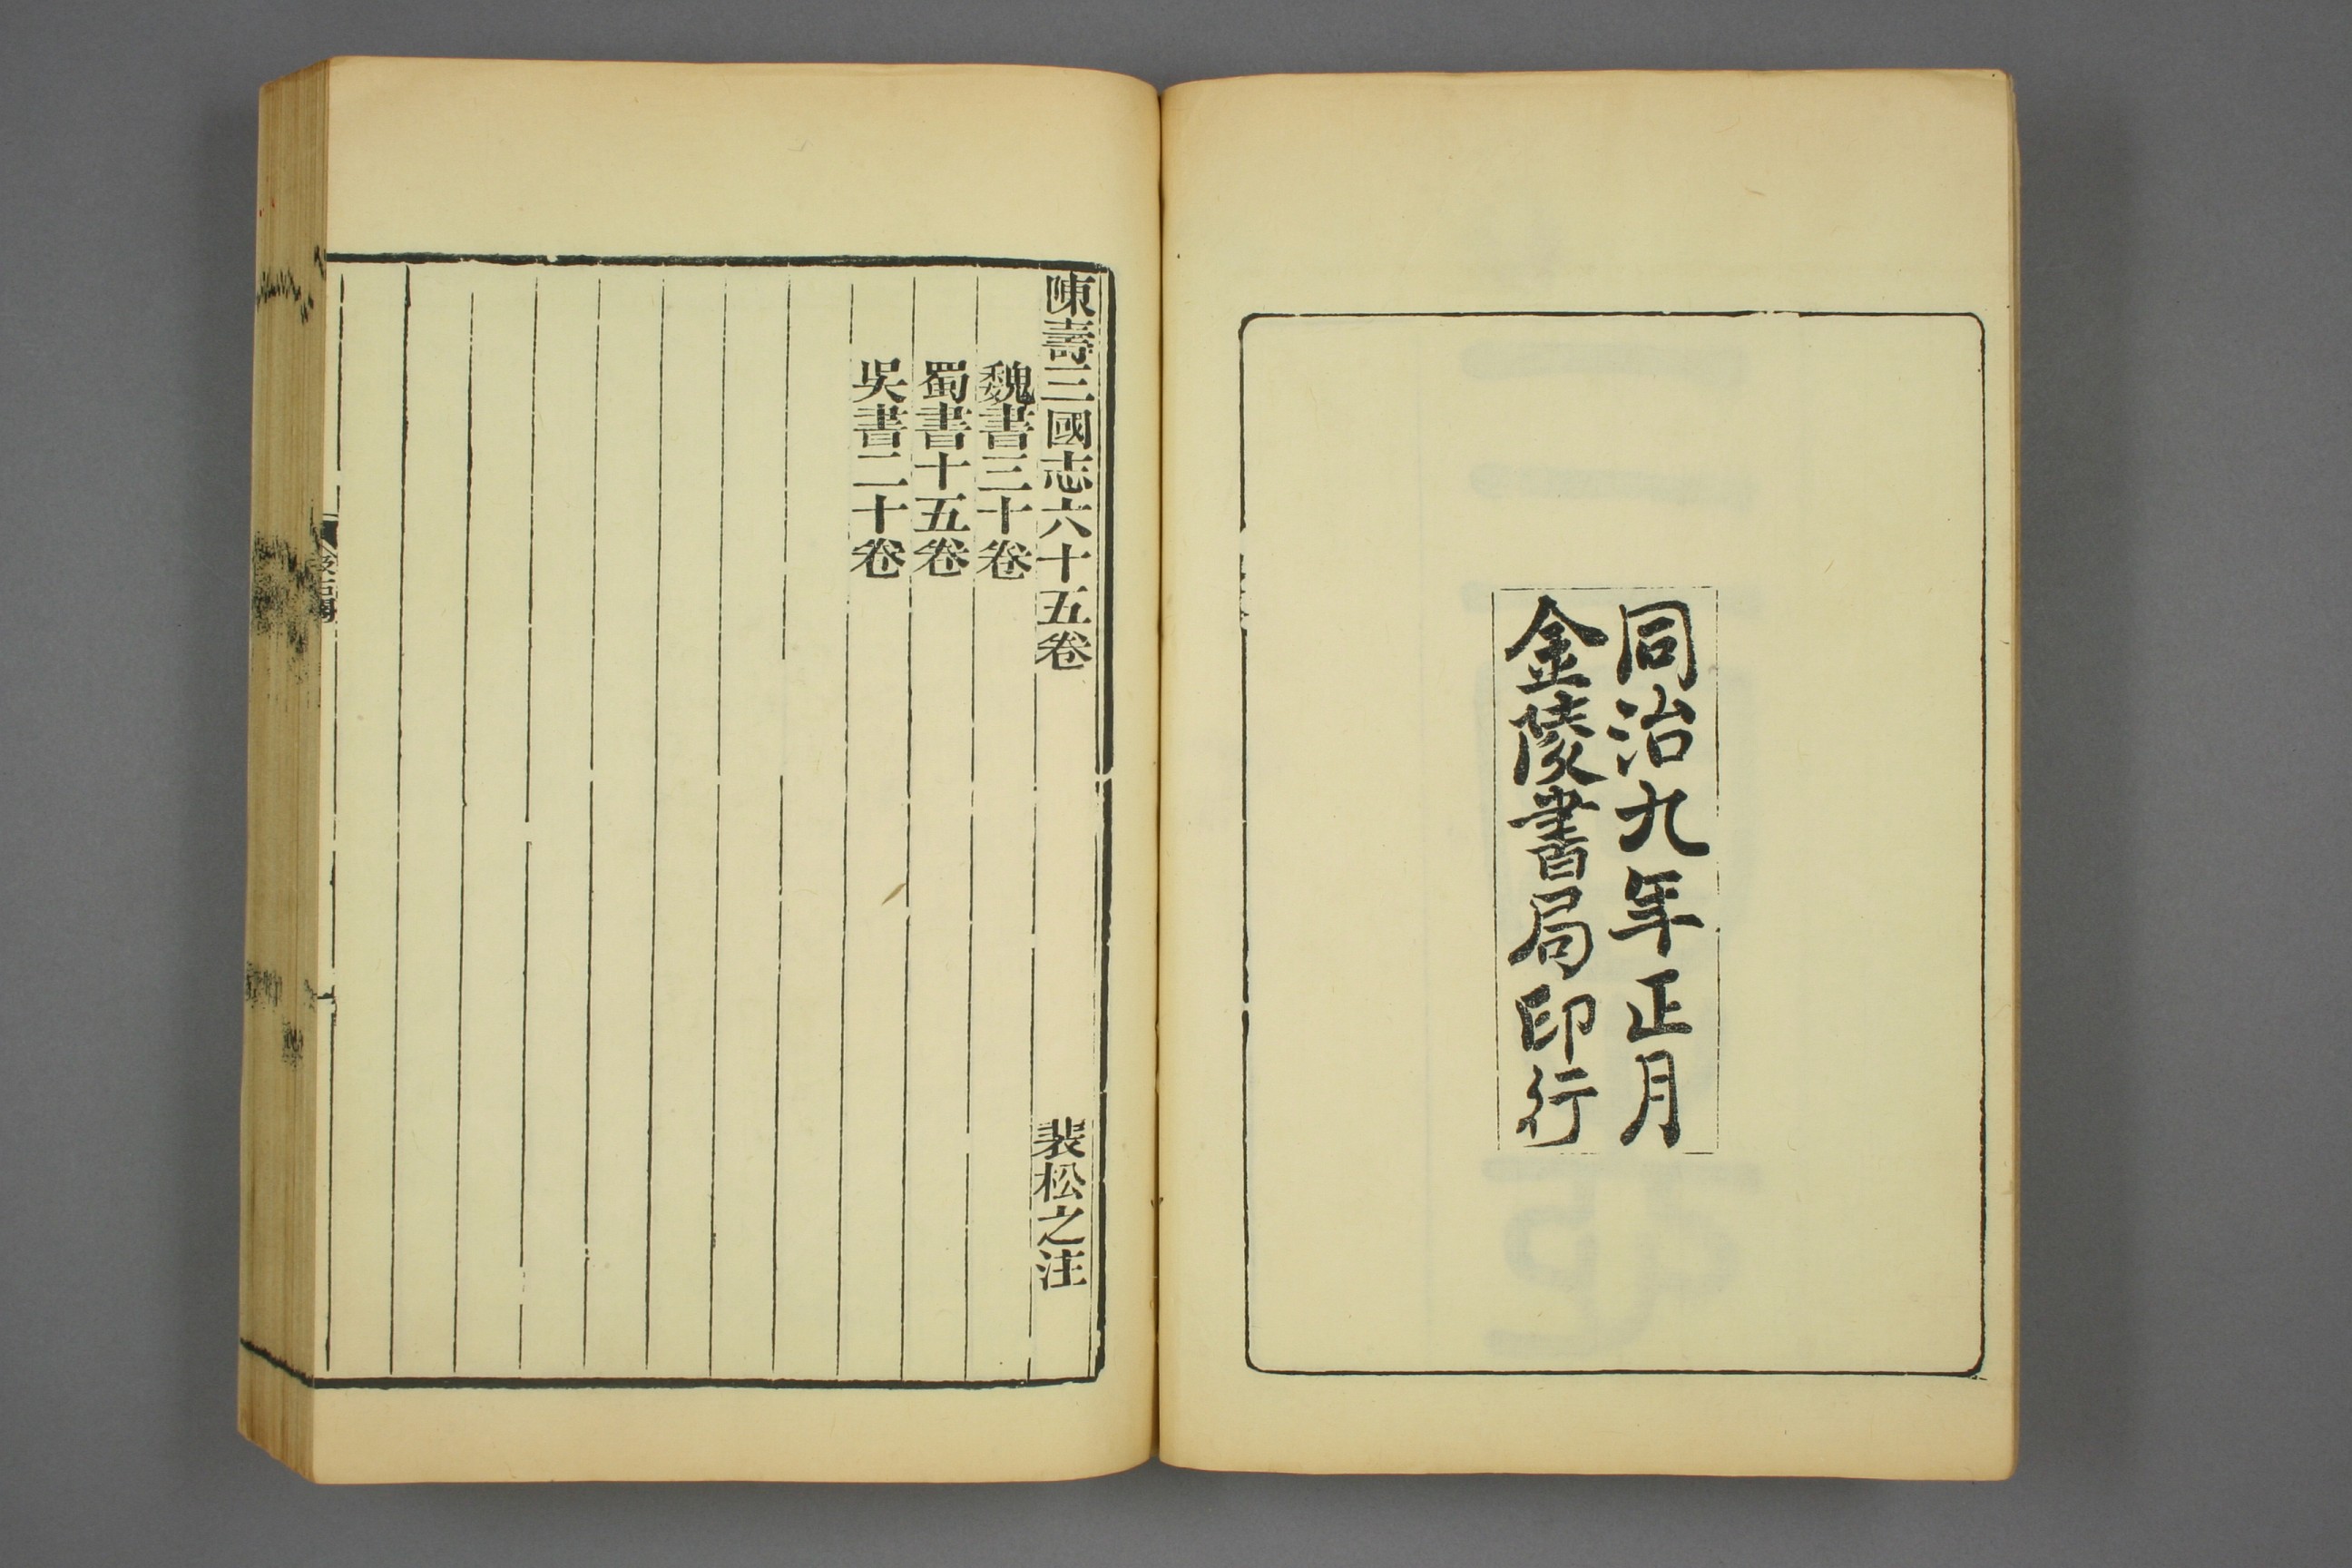 同治九年正月
金陵書局印行
陳壽三國志六十五卷 裴松之注
魏書三十卷
蜀書十五卷
吳書二十卷
汲古閣